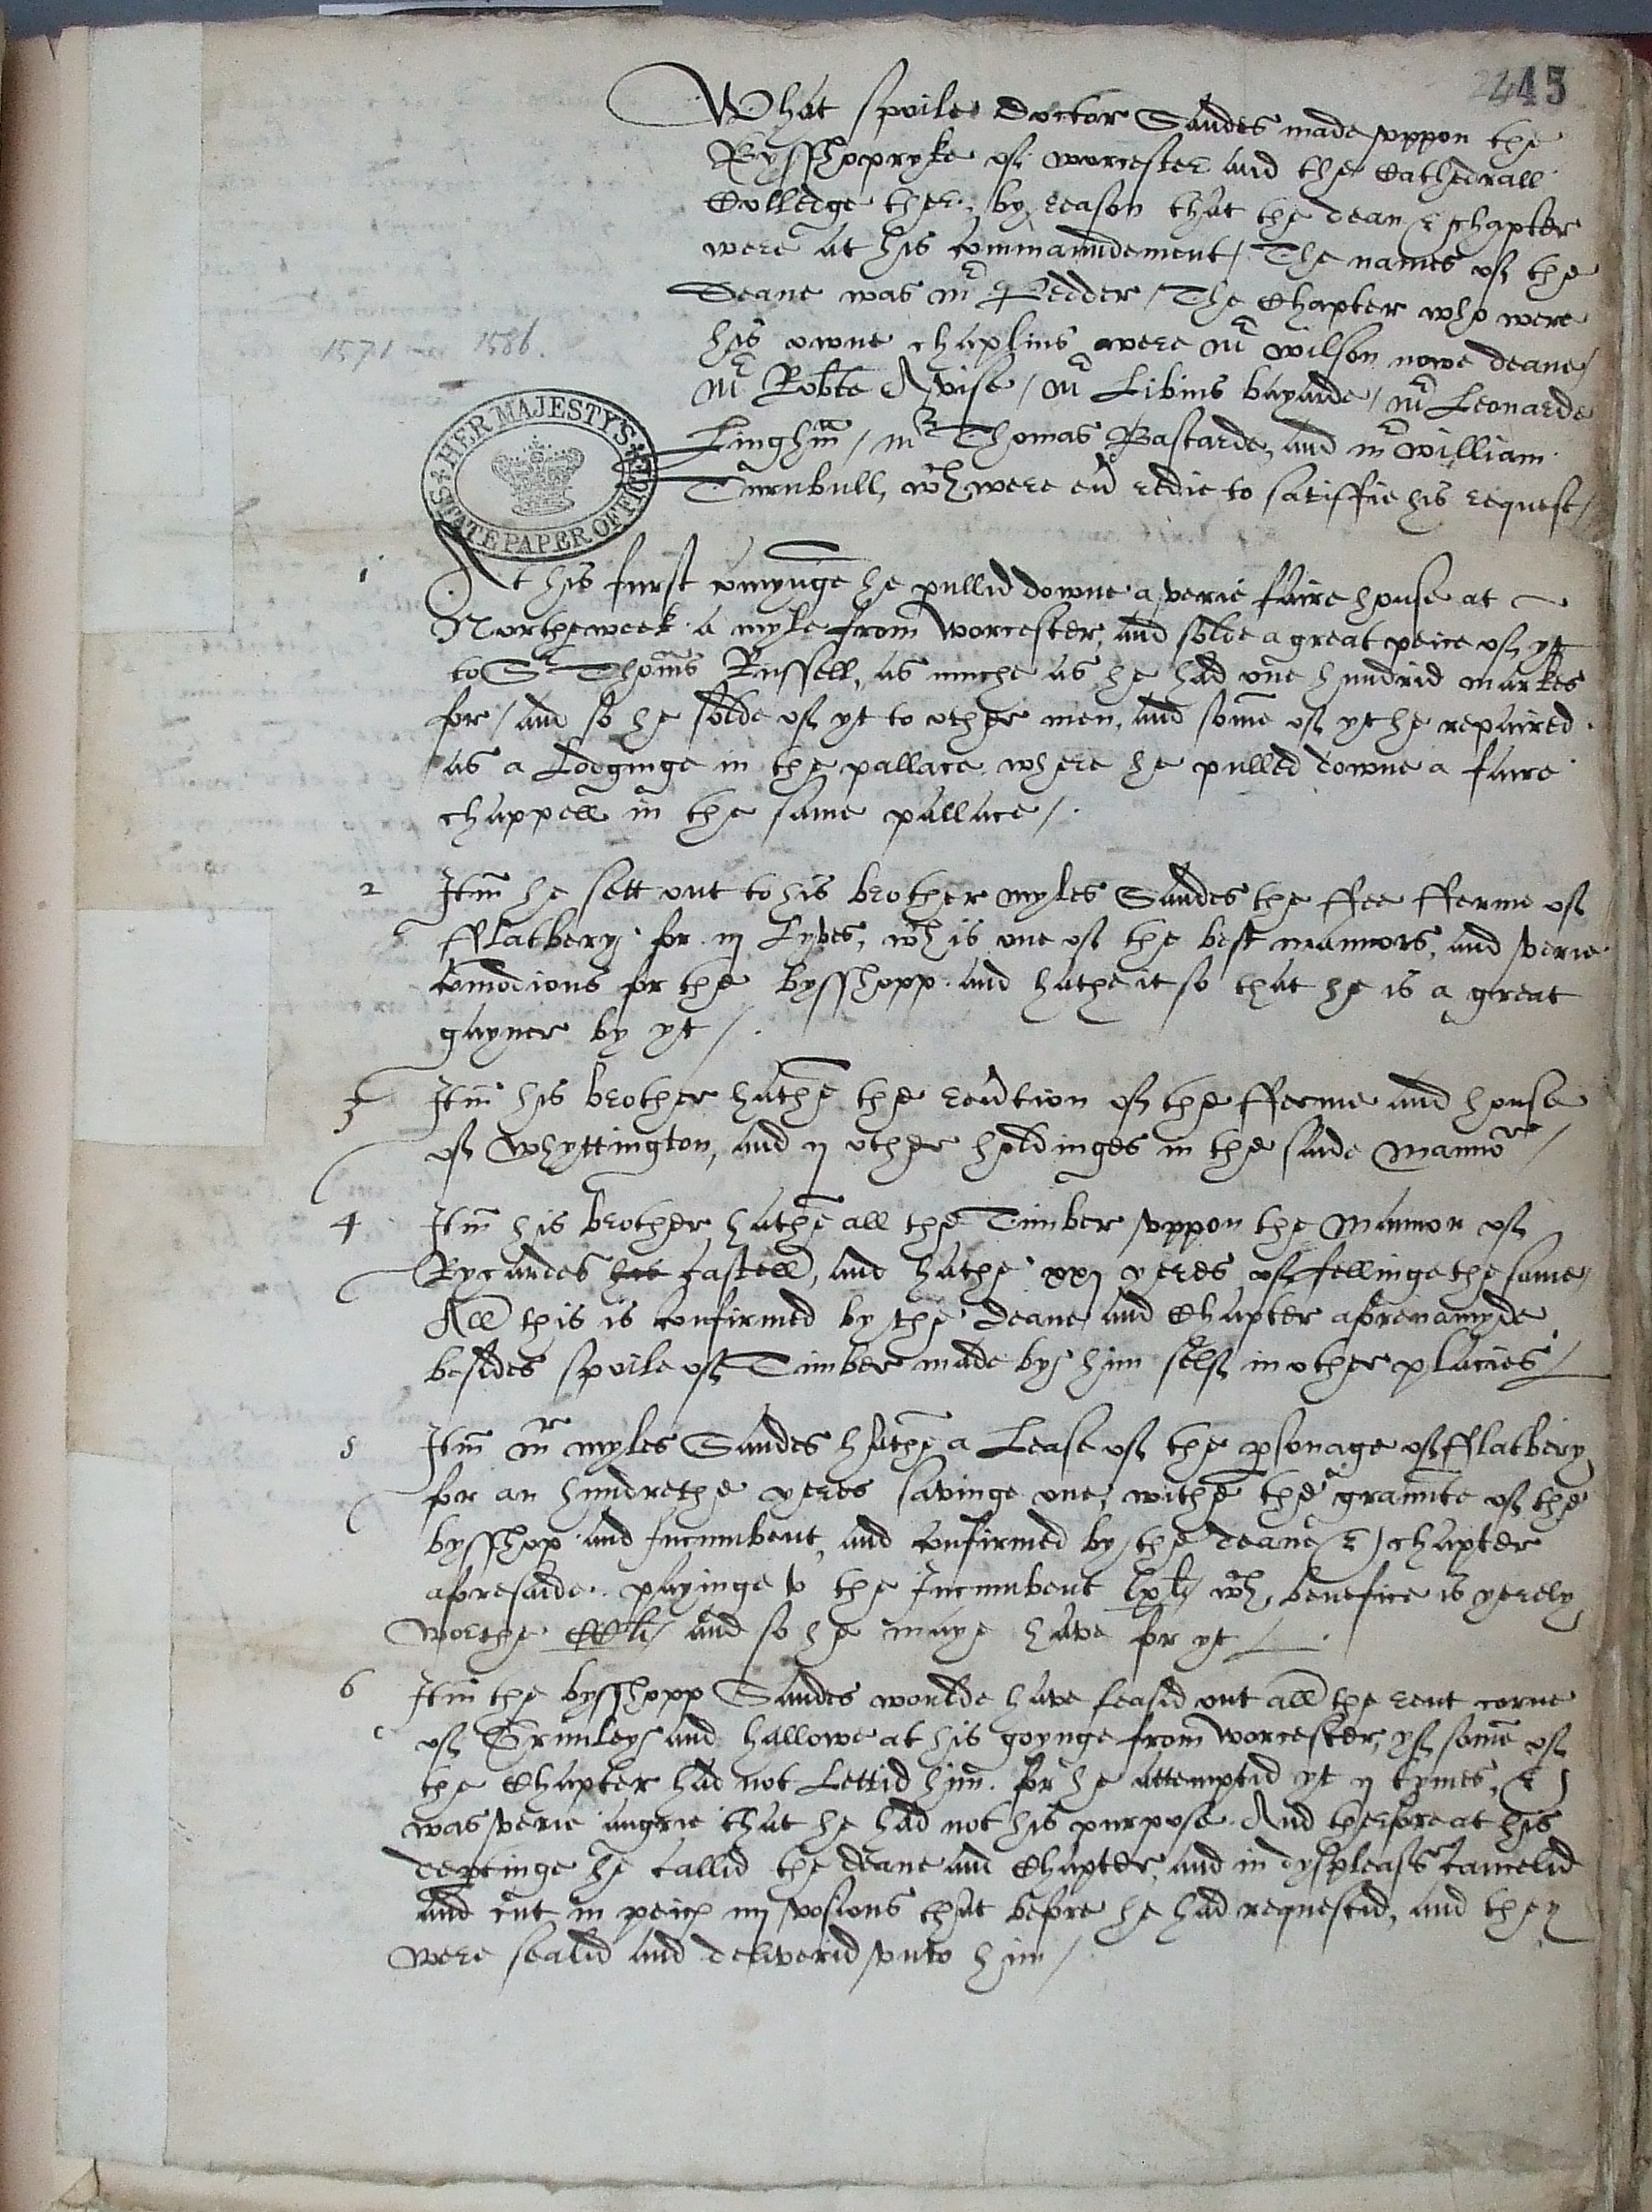 245
What spoile Doctor Sandes made vppon the
Bysshopryke of worcester and the Cathedrall
Colledge ther, by reason that the dean & chapter
were at his commaundement / The names of the
Deane was mr Pedder / The Chapter who were
his owne chaplins were mr wilson nowe deane /
1571 - 1586.
mr Robte Avise / mr Libius bayarde / mr Leonarde
Linghm / mr Thomas Bastarde, and mr william
Turnbull, wch were eu redie to satisffie his request /
HER MAJESTY'S STATE PAPER OFFICE
1 At his furst comynge he pullid downe a verie faire house at
Northeweek a myle from Worcester, and solde a great peice of yt
to Sr Thoms Russell, as muche as he had one hundrid markes
for / and so he solde of yt to other men, and some of yt he repaired
as a Lodginge in the pallace where he pulled downe a faire
chappell in the same pallace /.
2 Itm he sett out to his brother myles Sandes the ffee fferme of
fflatbery for iij Lyves, wch is one of the best mannors, and verie
comodious for the bysshopp and hathe it so that he is a great
gayner by yt /.
3 Itm his brother hathe the reu'tion of the fferme and house
of Whyttington, and ij other holdinges in the saide Mannor /
4 Itm his brother hathe all the Timber vppon the Mannor of
Rycardes his Castell, and hathe xxj yeres of fellinge the same /
All this is confirmed by the deane and Chapter aforenamyde
besides spoile of Timber made by him self in other placies /
5 Itm mr myles Sandes hathe a Lease of the psonage of fflatbery
for an hundrethe yeres savinge one, withe the graunte of the
bysshop and Incumbent, and confirmed by the deane & chapter
aforesaide. payinge to the Incumbent lxli / wch benefice is yerely
worthe CCli / and so he maye have for yt /.
6 Itm the bysshopp Sandes woulde have leasid out all the rent corne
of Grimley and hallowe at his goynge from Worcester, yf some of
the Chapter had not Lettid him. for he attemptid yt ij tymes, &
was verie angrie that he had not his purpose. And therfore at his
deptinge he callid the deane and Chapter, and in dyspleasr cancelid
and cut in peic iiij vosions that before he had requestid, and they
were sealid and deliverid vnto him /